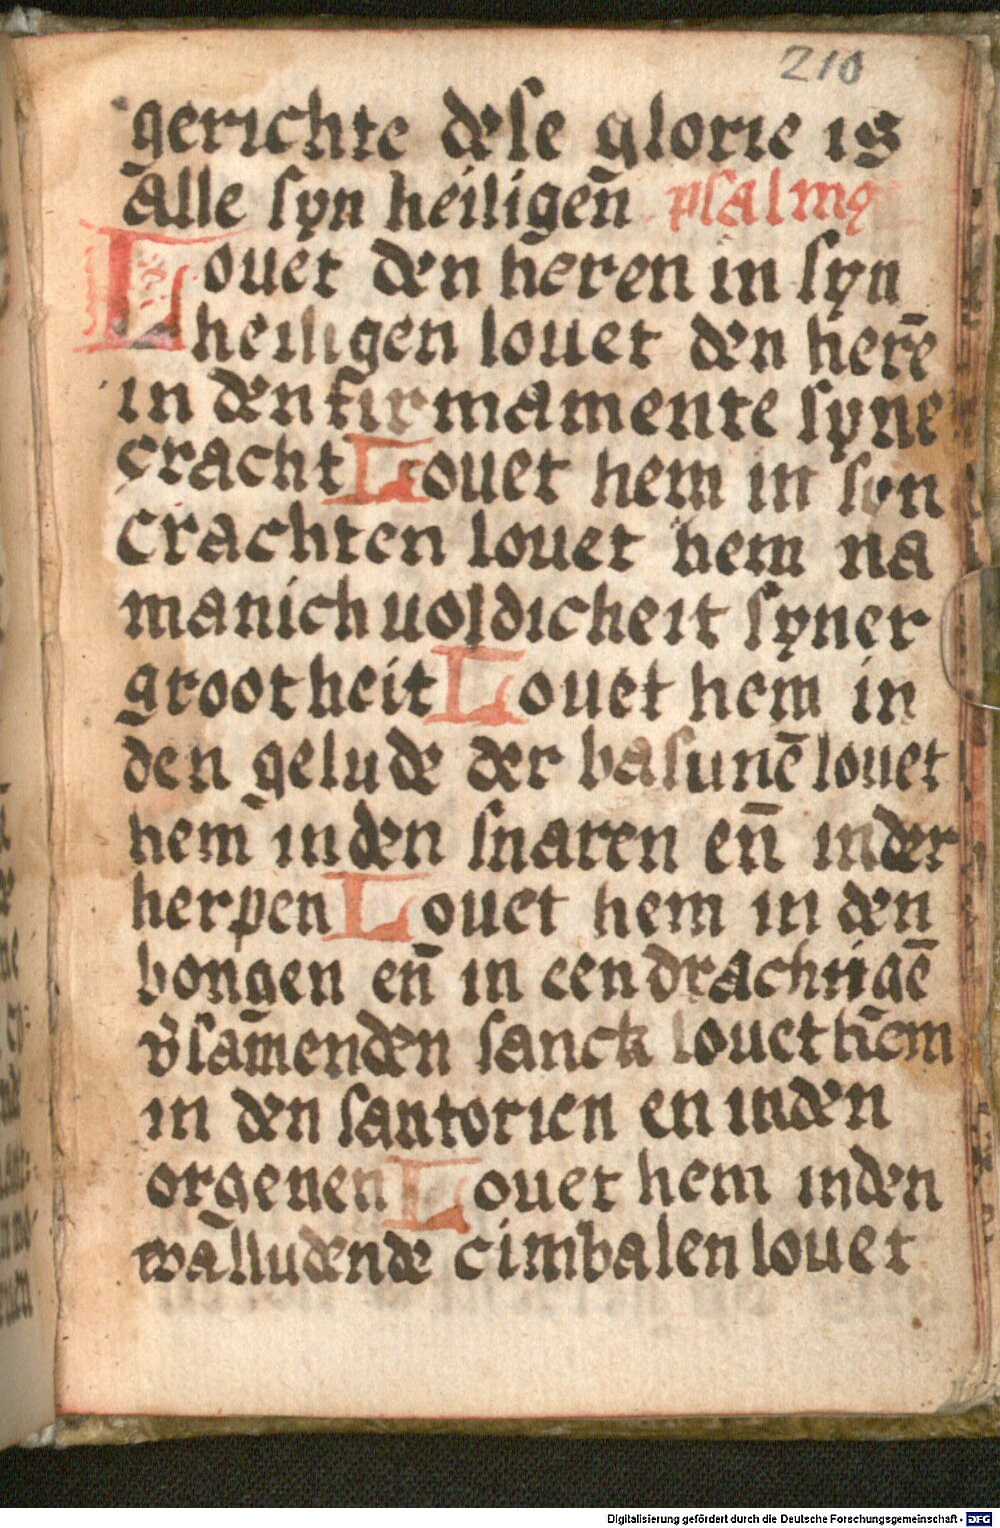 210
gerichte dese glorie is
alle syn heiligen̄ psalmꝰ
Louet den heren in syn
heiligen louet den herē
in den firmamente syne
cracht Louet hem in syn
crachten louet hem na
manichuoldicheit syner
grootheit Louet hem in
den gelude der basunē louet
hem in den snaren en̄ in der
herpen Louet hem in den
bongen en̄ in eendrachtigē
v̄samenden sanck louet hem
in den santorien en in den
orgenen Louet hem in den
walludende cimbalen louet
Digitalisierung gefördert durch die Deutsche Forschungsgemeinschaft - DFG